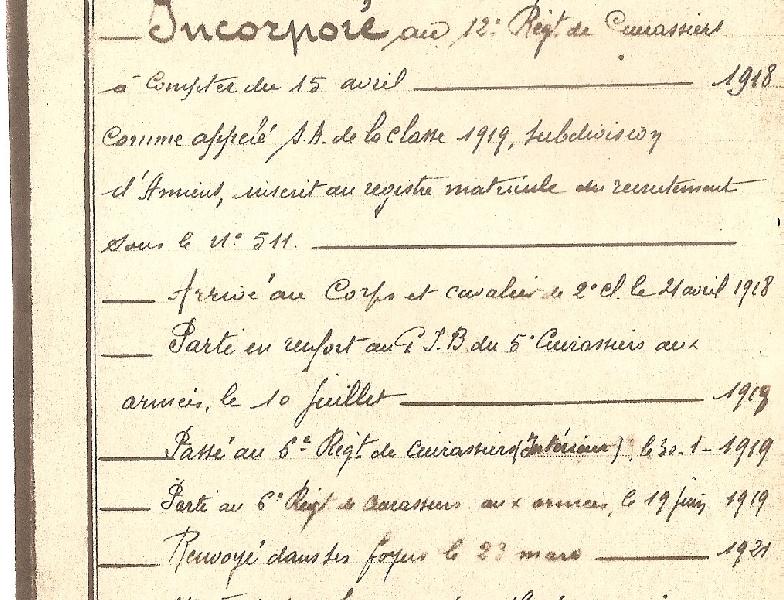 Incorporé au 12e Régt de Cuirassiers
à compter du 15 avril 1918
comme appelé S.A. de la classe 1919, subdivision
d'Amiens, inscrit au registre matricule du recrutement
sous le N° 511.
Arrivé au Corps et cavalier de 2e cl. le 21 avril 1918
Parti en renfort au du 5e Cuirassiers aux
armées, le 10 juillet
Passé au 6e Régt de Cuirassiers (Intérieur) le 30-1-1919
Parti au 6e Régt de Cuirassiers aux armées, le 19 juin 1919
Renvoyé dans ses foyers le 23 mars 1921